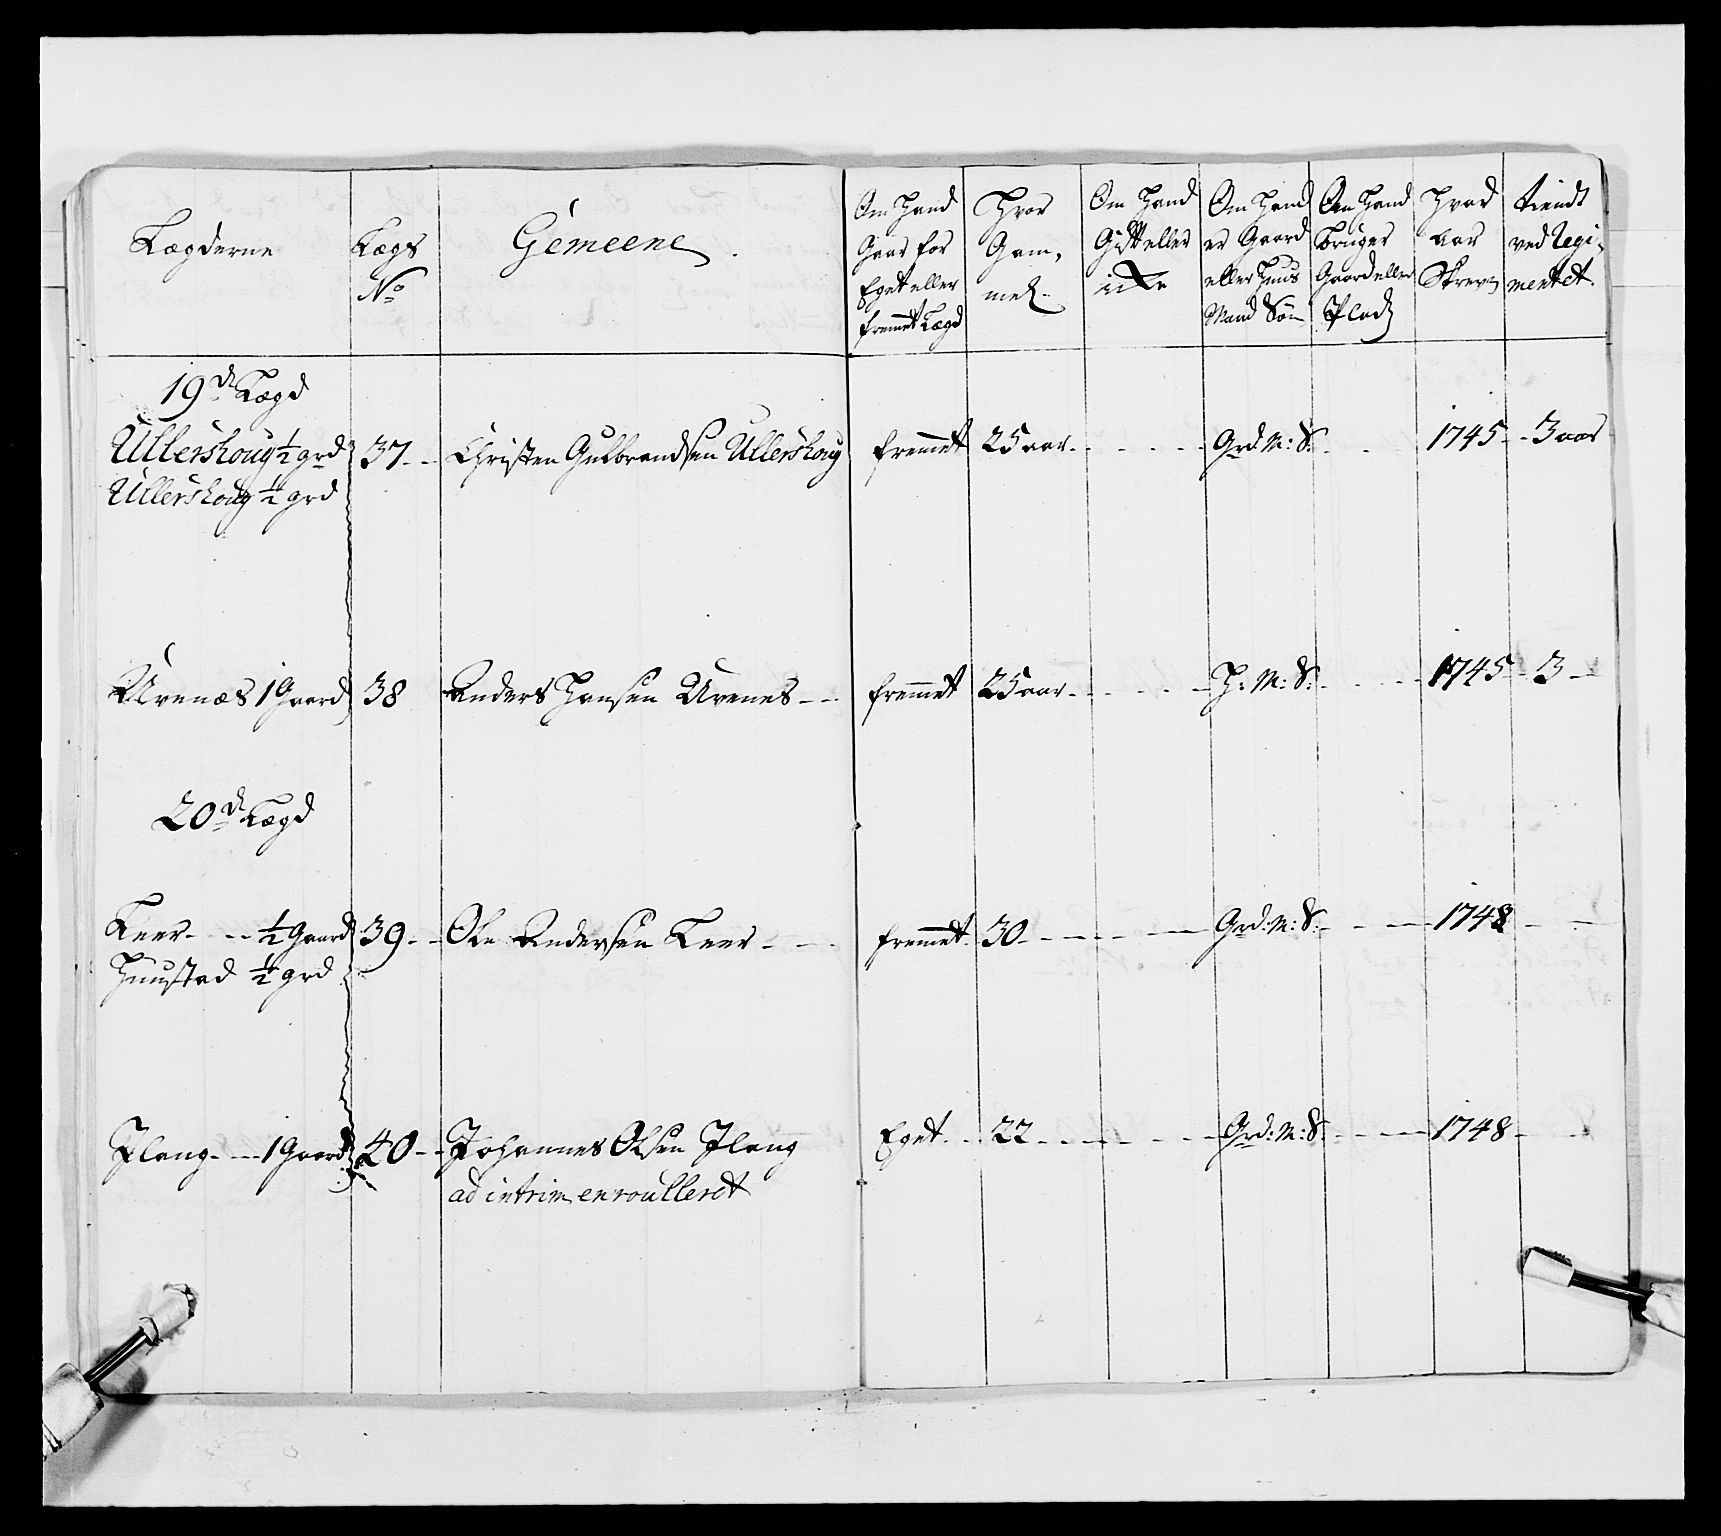 Lægderne
Lægs
No
Gemeene
Om Hand
Gaar for
Eget eller
fremet Lægd
Hvor
Gam,
mel
Om Hand
Gift eller
icke
Om Hand
er Gaard
eller Huus
Mand Søn
Om Hand
bruger
Gaard eller
Plads
Hvad
aar
Skreven
tiendt
ved Regi,
mentet.
19de Lægd
Ullershoug ½ grd 37 - - Christen Gulbrandsen Ullershoug fremmet 25 aar - - - - - Grd: M: S: - - 1745 - - 3 aar
Ullershoug ½ grd
Urenæs 1 Gaard 38 Anders Hansen Urenes - - fremmet 25 aar - - - - - H: M: S: - - - 1745 - 3 -
20de Lægd
Leer - - - ½ Gaard 39 - - Ole Andersen Leer - - - fremmet 30 - - - - - Grd: M: S: - - - 1748 - -
Huustad ½ grd
Ilang - - - 1 Gaard 40 - - Johannes Olsen Ilang Eget - - 22 - - - - - Grd: M: S: - - - 1748 - -
ad intrim enroulleret